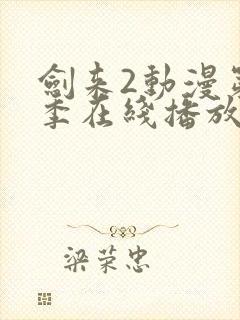 劍来2動漫
季在綫播放
梁荣忠